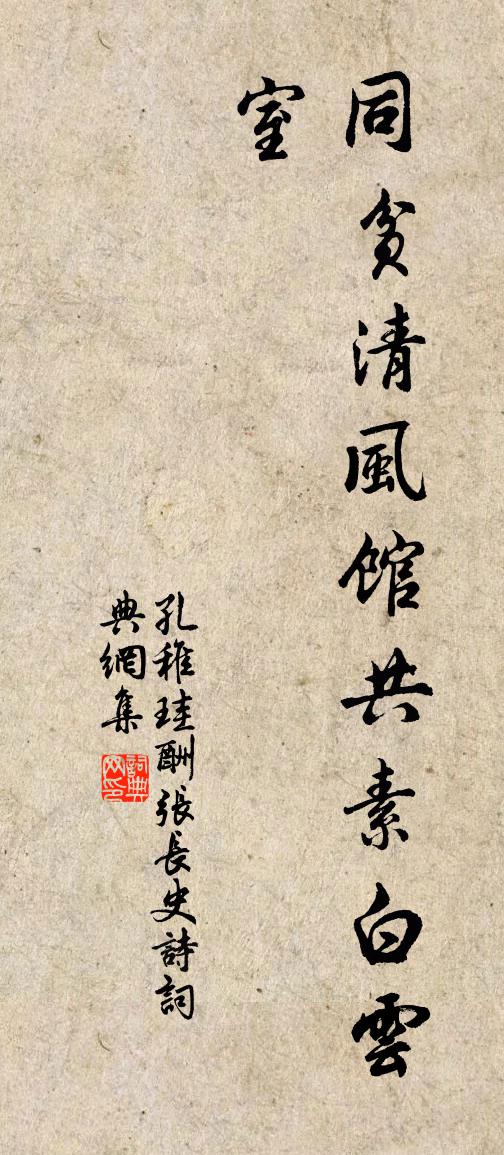 同貧清風館共素白雲
室
孔稚珪酬張長史詩詞
典網集
詞典
网印